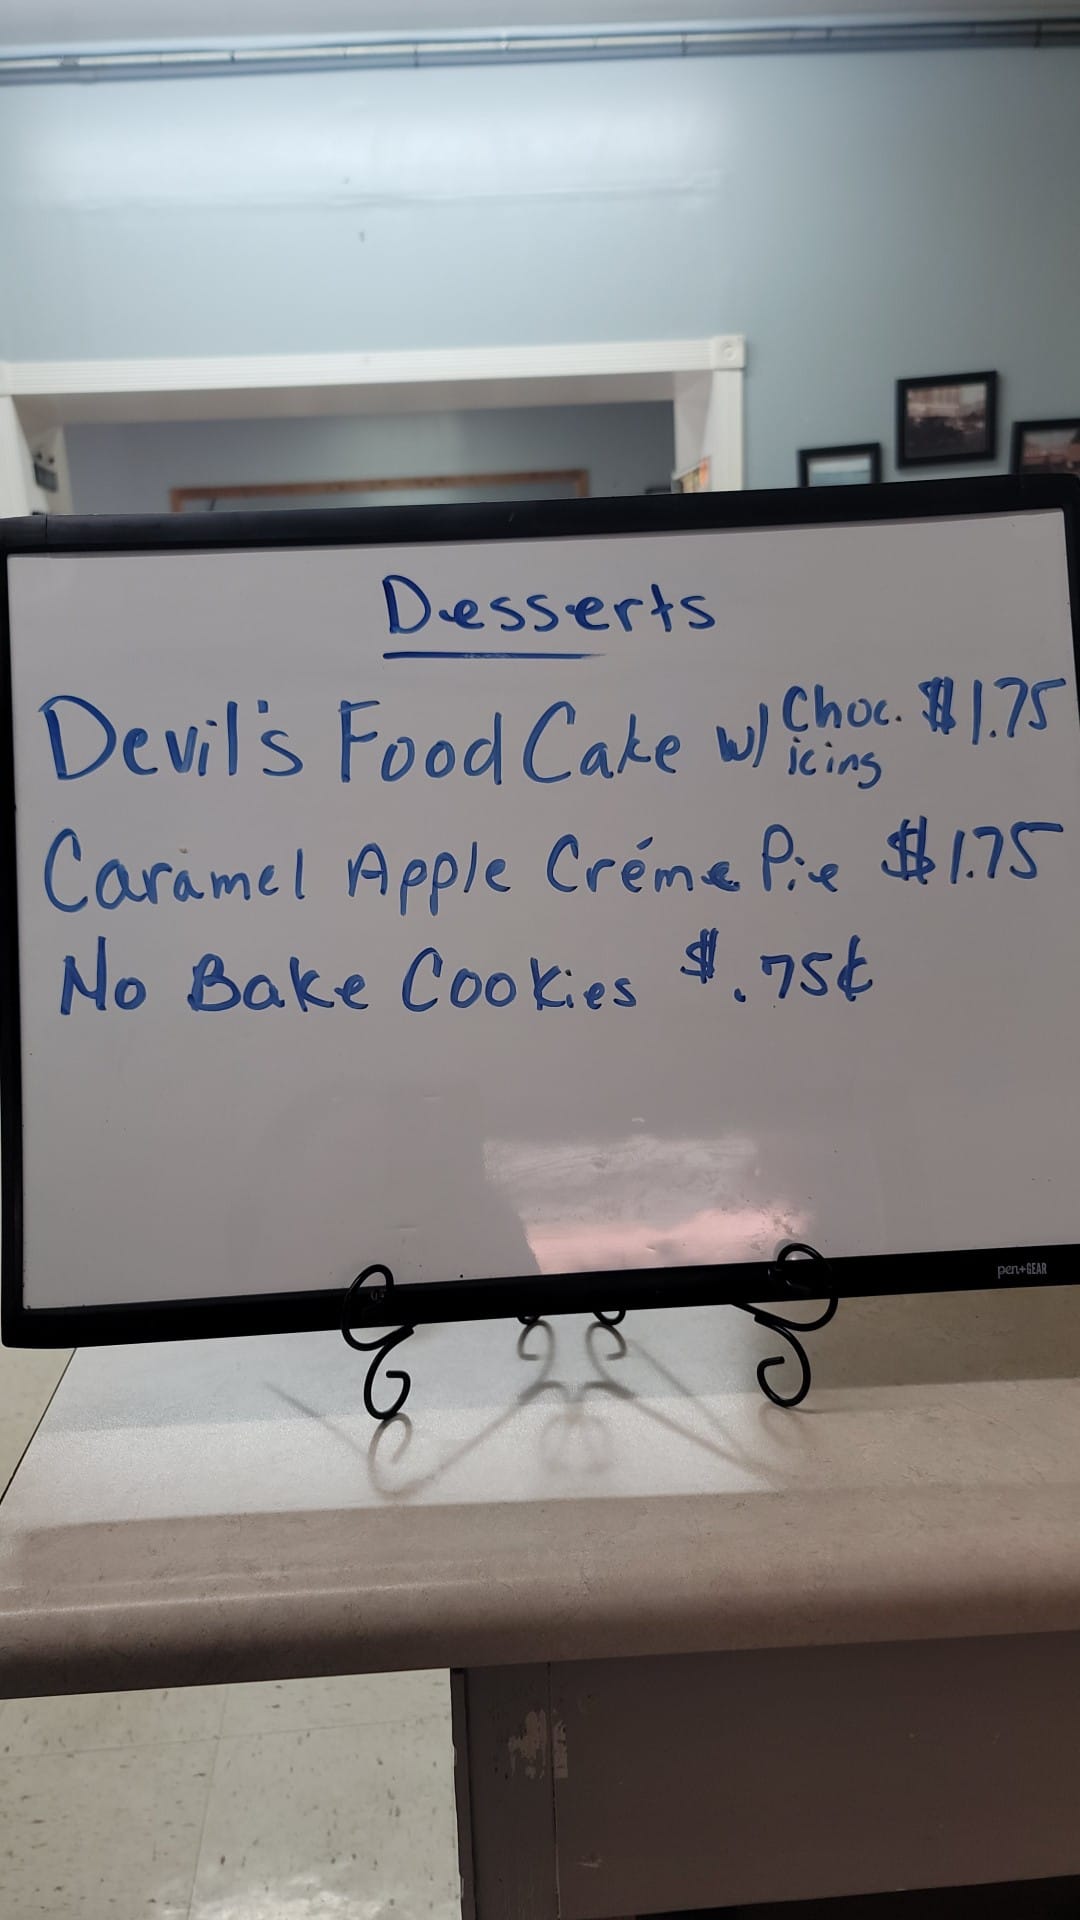 Desserts
Devil's Food Cake w/ Choc. icing $1.75
Caramel Apple Créme Pie $1.75
No Bake Cookies $.75¢
pen+GEAR